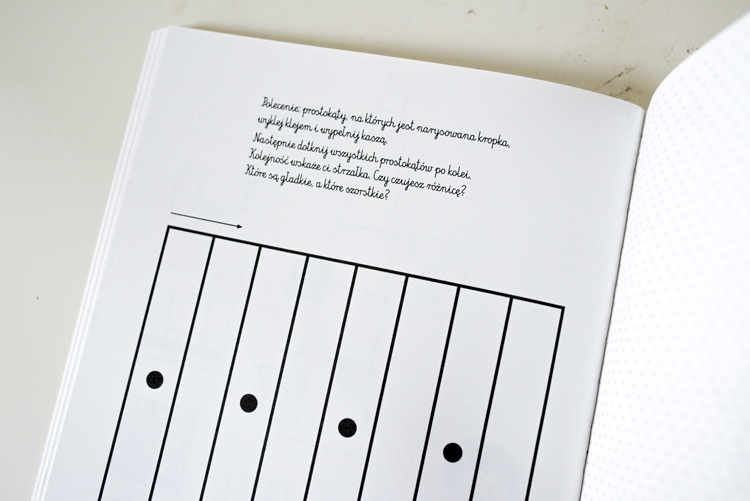 Polecenie: prostokąty, na których jest narysowana kropka,
wyklej klejem i wypełnij kaszą.
Następnie dotknij wszystkich prostokątów po kolei.
Kolejność wskaże ci strzałka. Czy czujesz różnicę?
Które są gładkie, a które szorstkie?